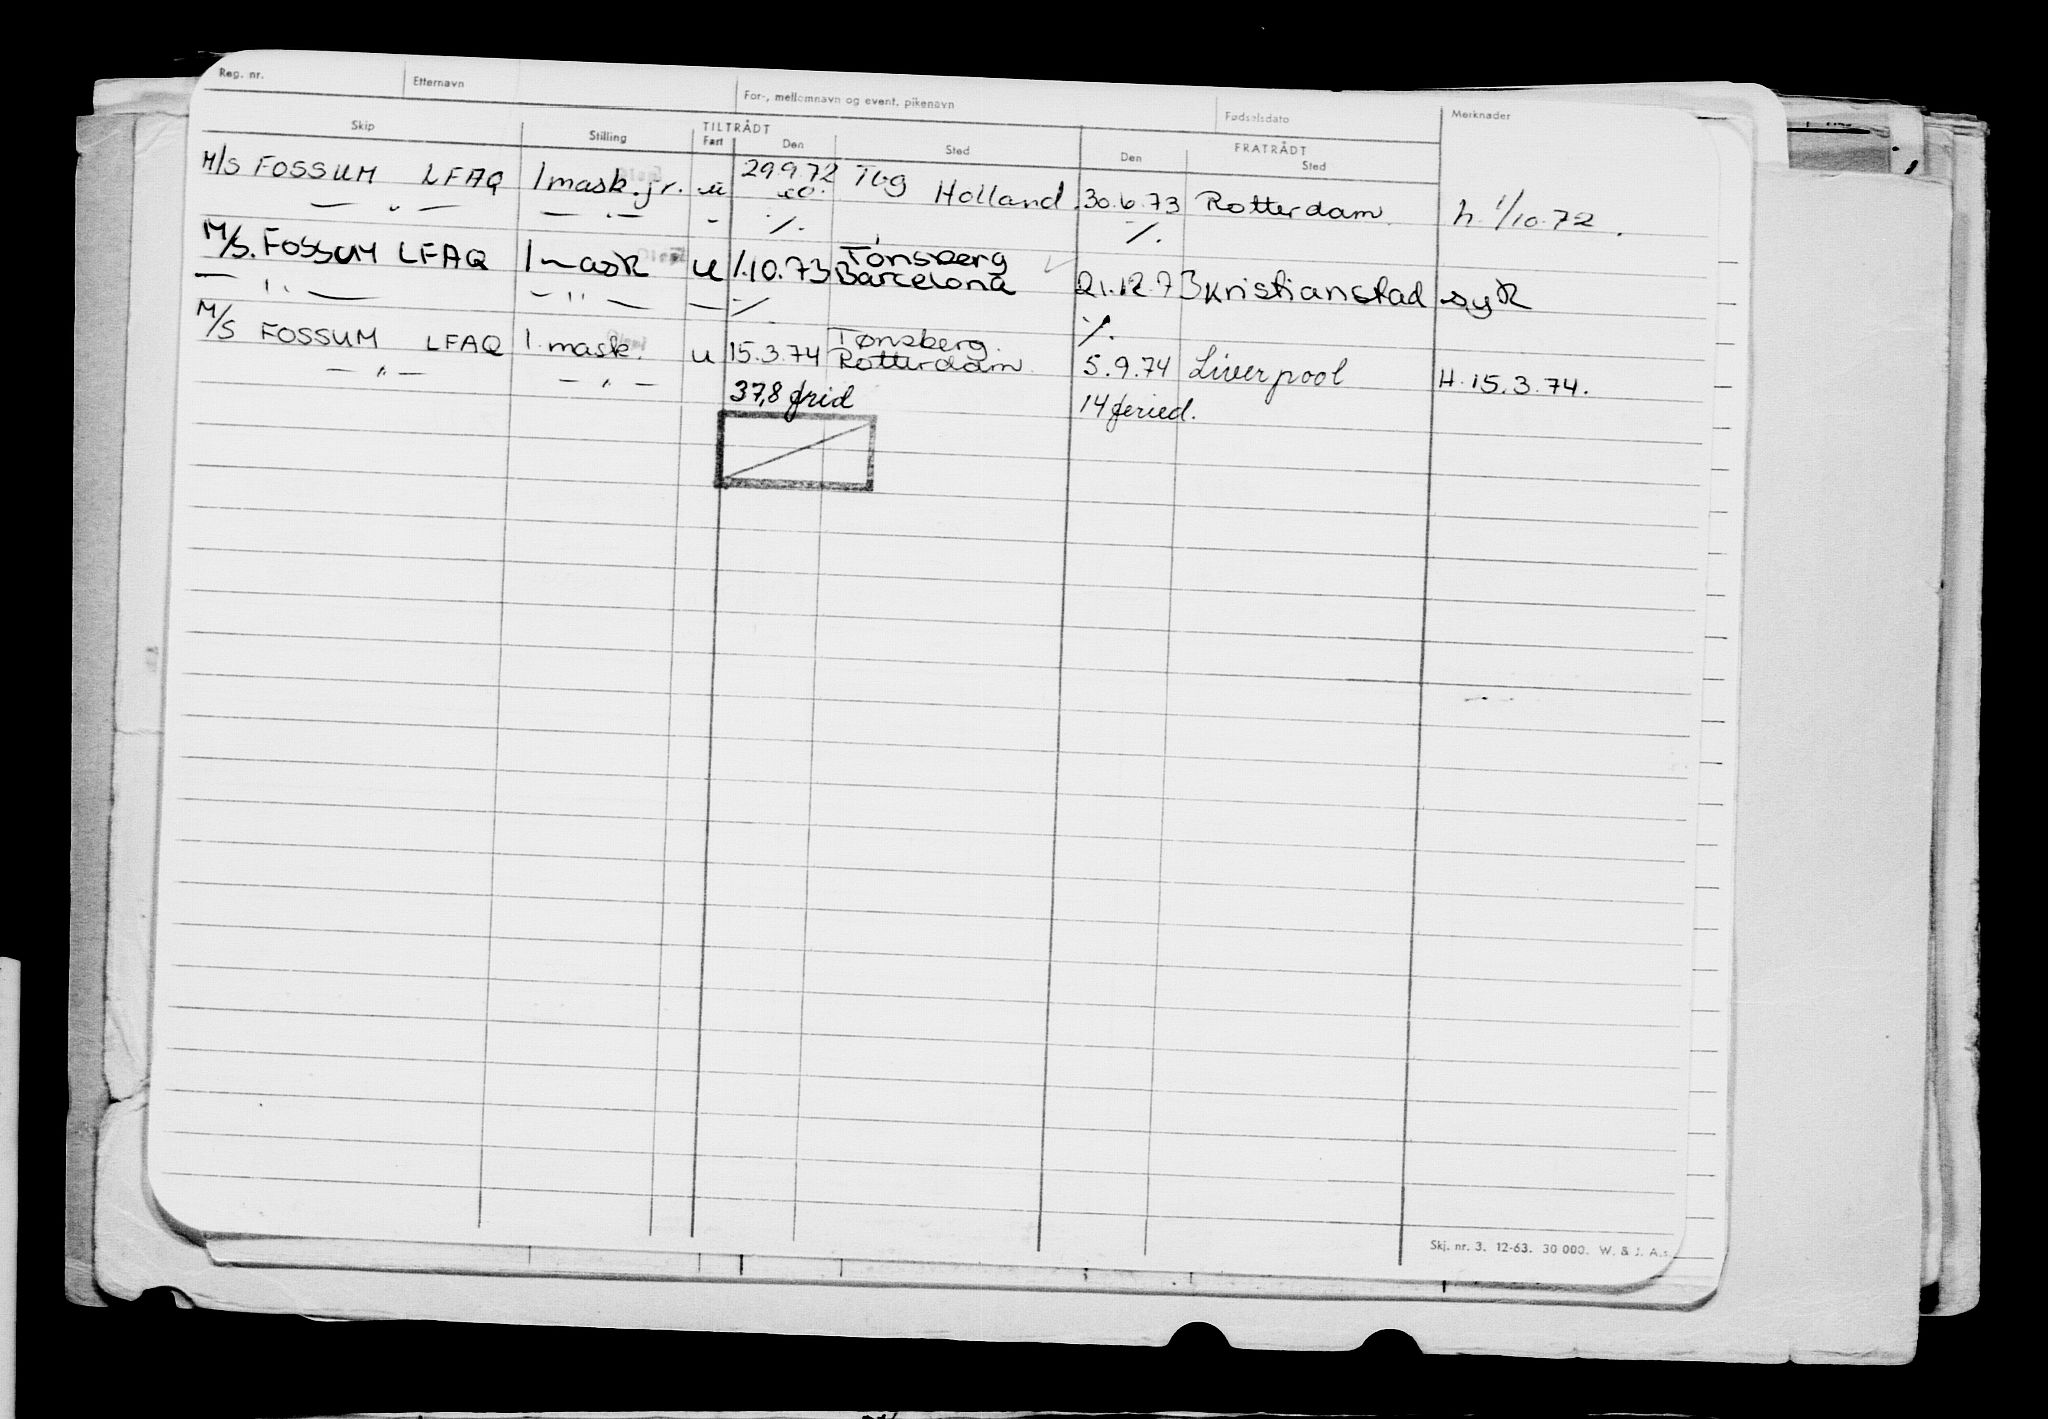 Reg. nr. Etternavn For-, mellomnavn og event. pikenavn Fødselsdato Merknader
TILTRÅDT FRATRÅDT
Skip Stilling Fart Den Sted Den Sted
M/S FOSSUM LFAQ 1 mask. jr. u 29.9.72 Tbg Holland 30.6.73 Rotterdam h. 1/10.72.
— " — — " — - ./. ./.
M/S. FOSSUM LFAQ 1 mask u 1.10.73 Tønsberg
Barcelona 21.12.73 Kristianstad syk
— " — — " — — ./. ./.
M/S FOSSUM LFAQ 1. mask. u 15.3.74 Tønsberg.
Rotterdam 5.9.74 Liverpool H. 15.3.74.
— " — — " — 37,8 frid 14 feried.
Skj. nr. 3. 12-63. 30 000. W. & J. A.s